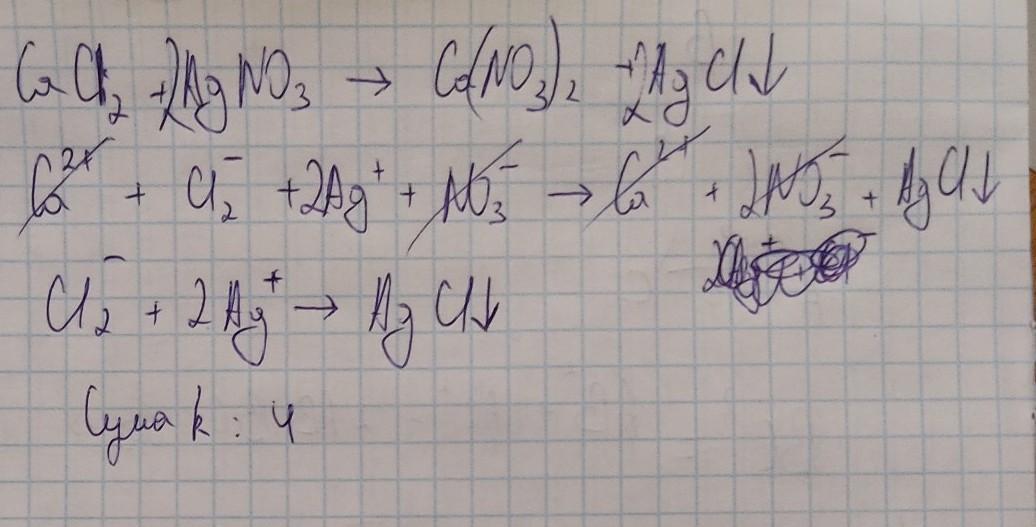 CaCl₂ + 2AgNO₃ → Ca(NO₃)₂ + 2AgCl↓
Ca²⁺ + Cl₂⁻ + 2Ag⁺ + NO₃⁻ → Ca²⁺ + 2NO₃⁻ + AgCl↓
Cl₂⁻ + 2Ag⁺ → AgCl↓
Сума k : 4